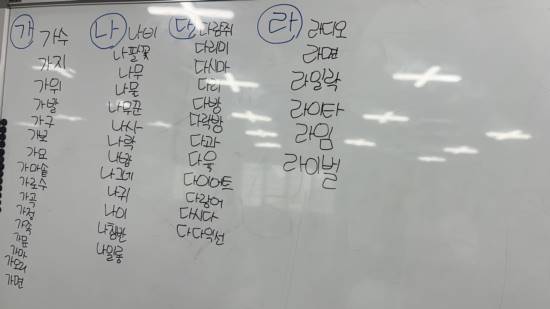 가
가수
가지
가위
가발
가구
가보
가요
가마솥
가로수
가곡
가정
가족
가문
가마
가오리
가면
나
나비
나팔꽃
나무
나물
나무꾼
나사
나락
나방
나그네
나귀
나이
나침반
나일롱
다
다람쥐
다리미
다시마
다리
다방
다락방
다과
다육
다이어트
다랑어
다시다
다다익선
라
라디오
라면
라일락
라이타
라임
라이벌